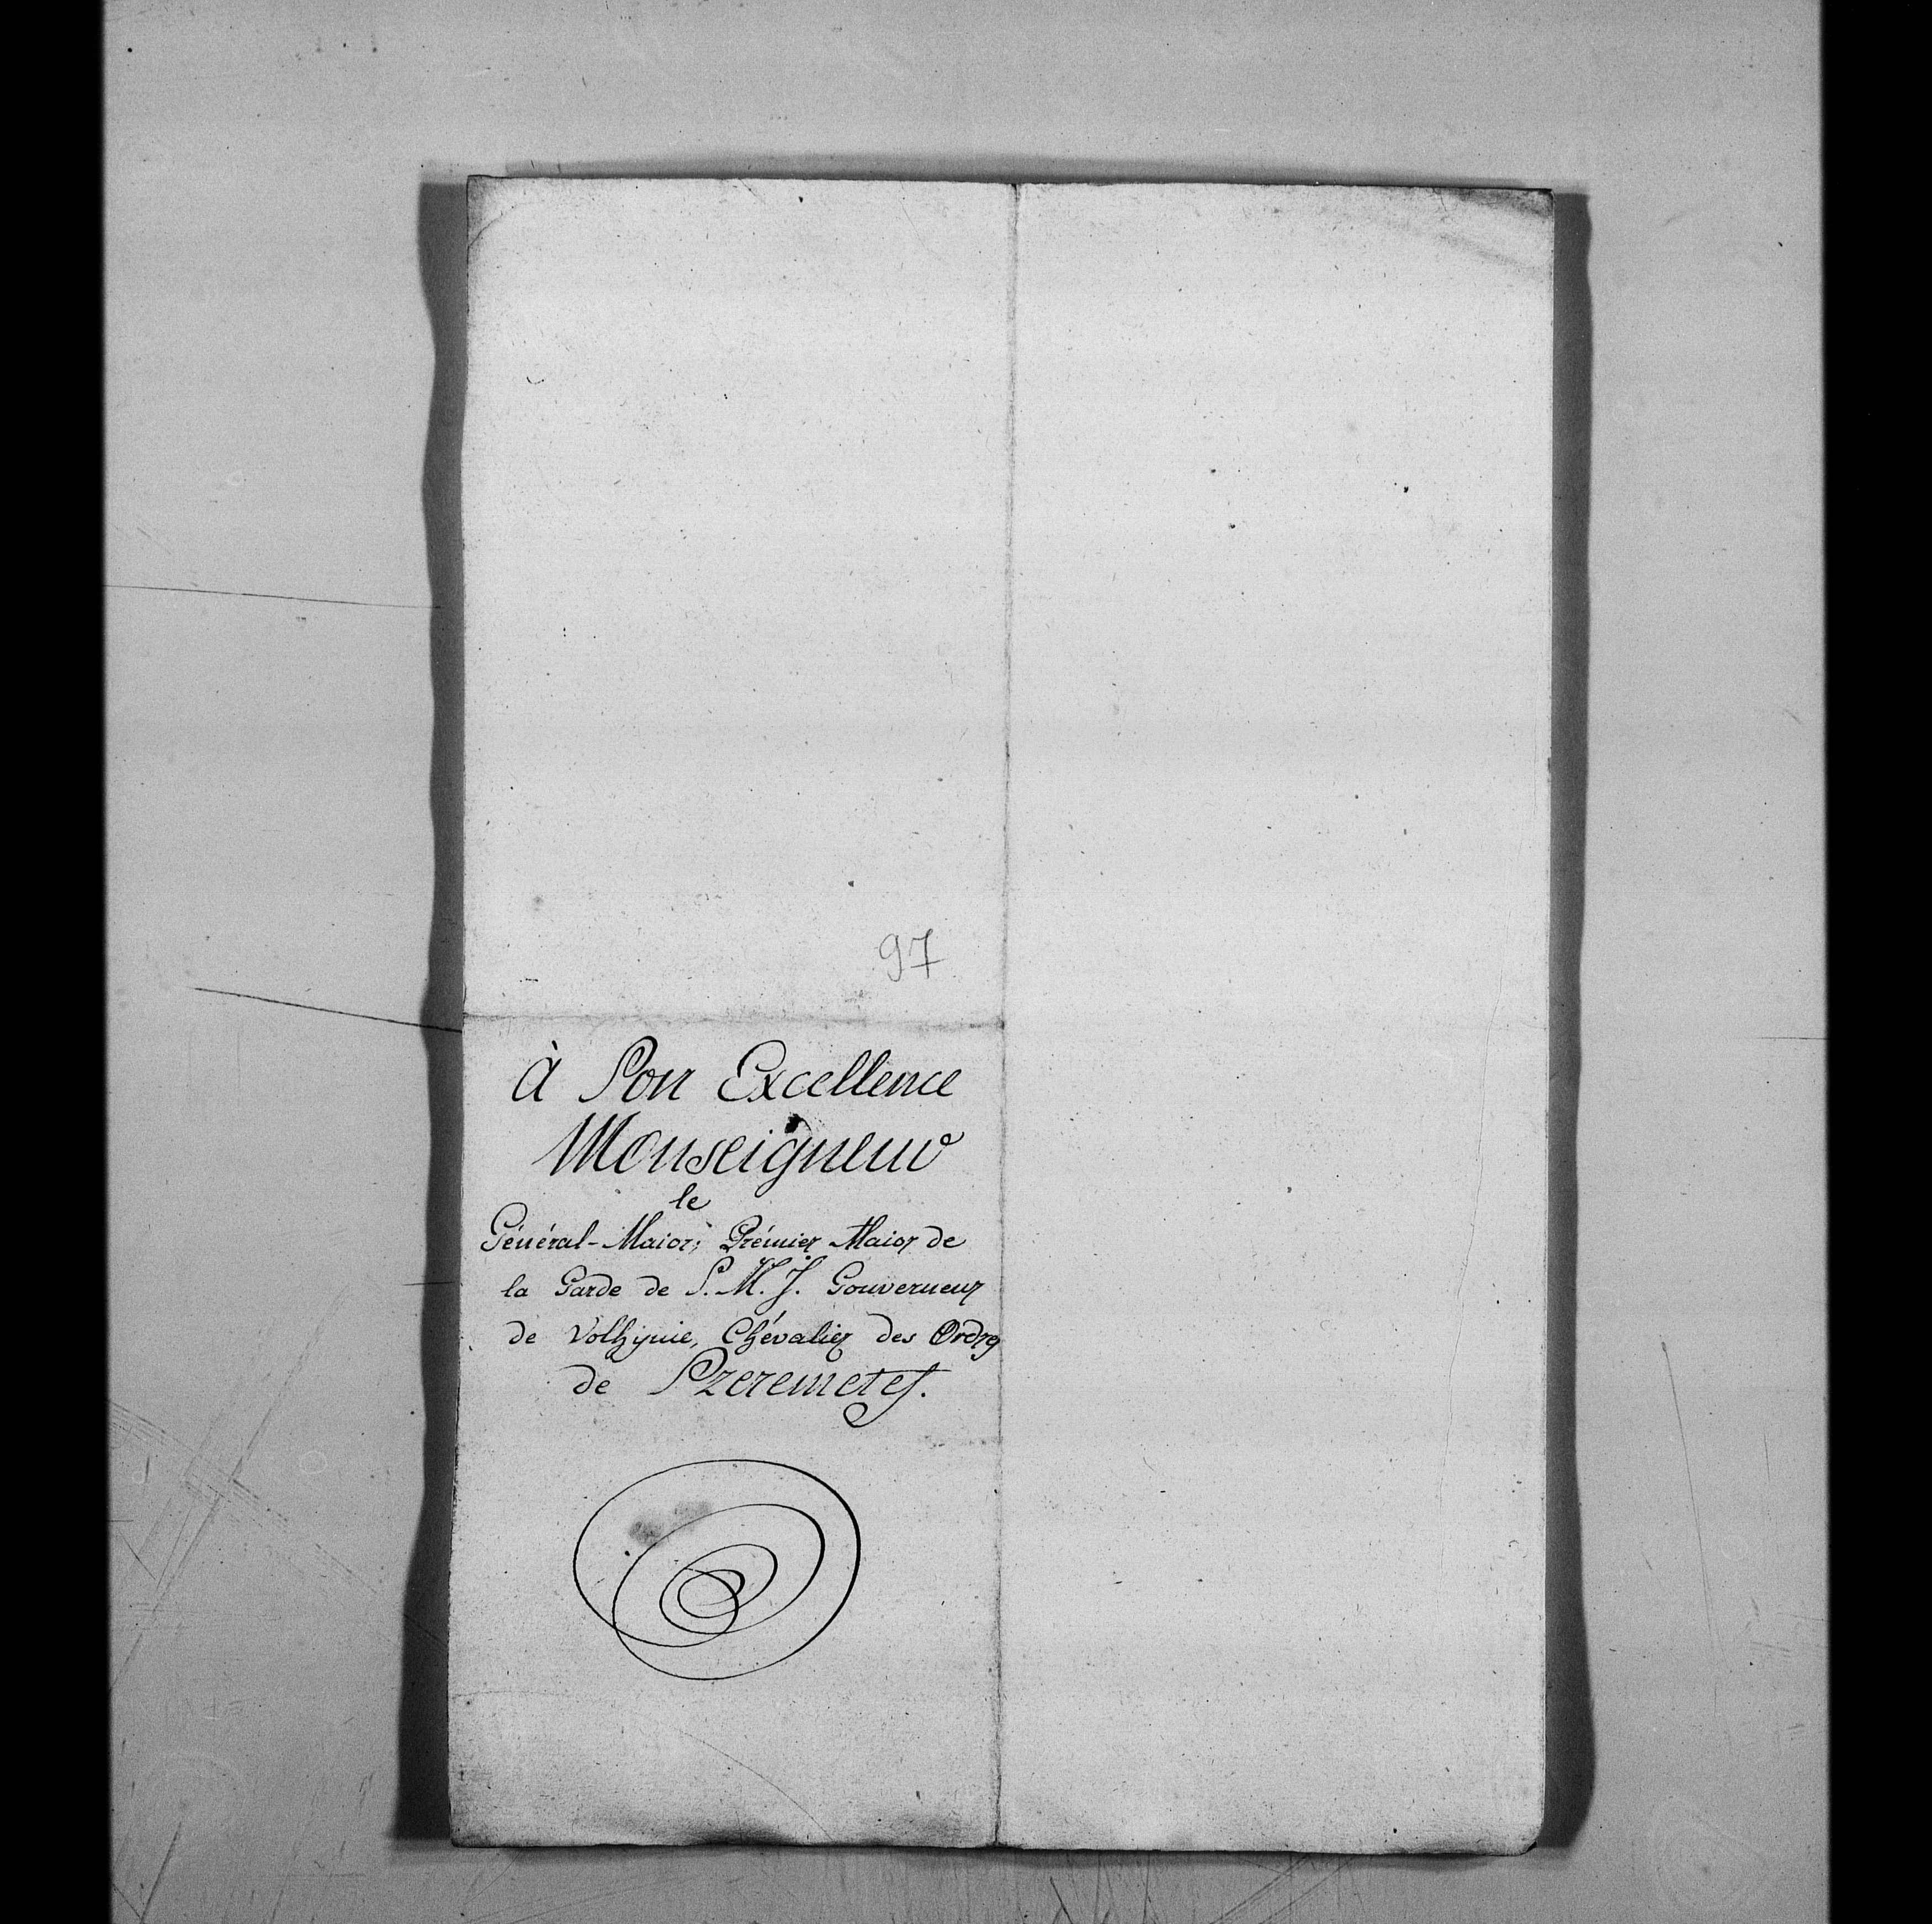 97
à Son Excellence
Monseigneur
le
Général-Maior, Prémier Maior de
la Garde de S. M. J. Gouverneur
de Volhynie, Chévalier des Ordres
de Szeremetef.